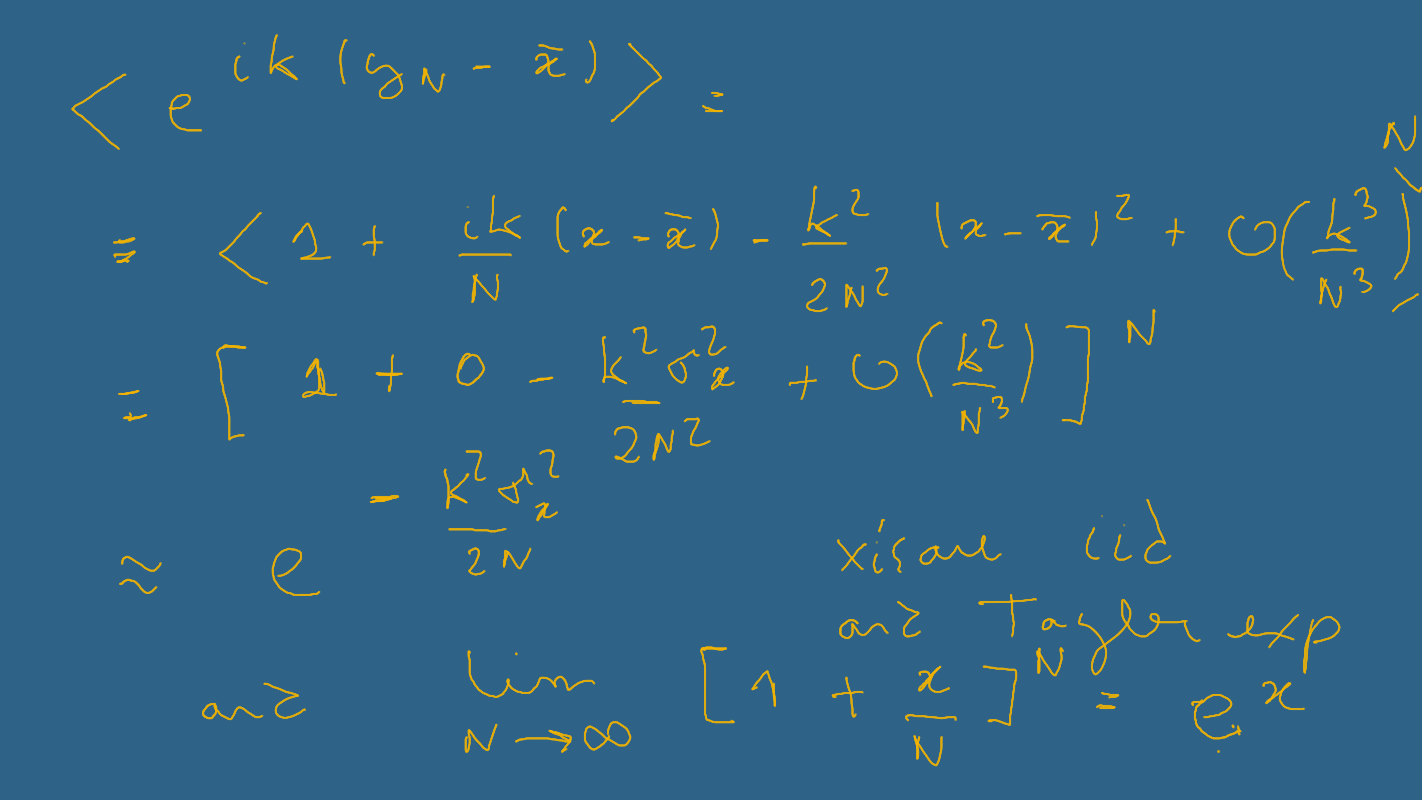 < e^{ik(y_N - x̄)} > =
= < 1 + ik/N (x - x̄) - k²/2N² (x - x̄)² + O(k³/N³) >^N
= [ 1 + 0 - k²σ²_x/2N² + O(k²/N³) ]^N
≈ e^{-k²σ²_x/2N}
xis are iid
and Taylor exp
and lim_{N→∞} [ 1 + x/N ]^N = e^x